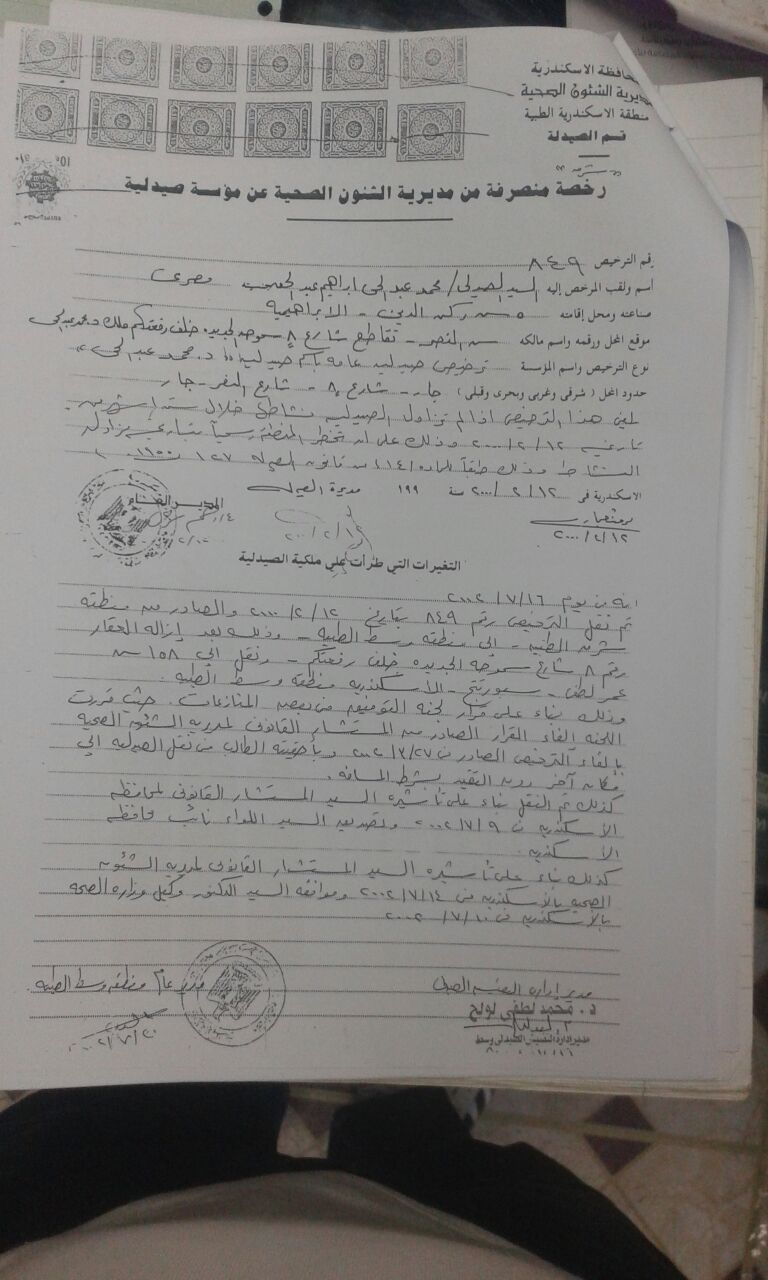 محافظة الاسكندرية
مديرية الشئون الصحية
منطقة الاسكندرية الطبية
قسم الصيدلة
رخصة منصرفة من مديرية الشئون الصحية عن مؤسسة صيدلية
رقم الترخيص ٨٤٩
أسم ولقب المرخص إليه السيد الصيدلى / محمد عبد الحى ابراهيم عبد مصرى
صناعته ومحل إقامته ٥ ركن الدين - الابراهيمية
موقع المحل ورقمه واسم مالكه النصر - تقاطع شارع ٨ سموحه الجديده خلف ملك د. محمد عبد الحى
نوع الترخيص واسم المؤسسة ترخيص صيدليه عامه باسم صيدلية د. محمد عبد الحى
حدود المحل ( شرقى وغربى وبحرى وقبلى ) جار - شارع ٨ - شارع النصر - جار
يلغى هذا الترخيص اذا لم تزاول الصيدليه نشاطها خلال ستة
تاريخ ٢٠٠٠/٢/١٢ وذلك على ان تخطر المنطقة رسمياً بتاريخ مزاولة
النشاط وذلك طبقاً للماده (١٤) من قانون الصيدله ١٢٧
الاسكندرية فى ٢٠٠٠/٢/١٢ سنة ١٩٩ مديرة الصيدلى
المدير العام
٢٠٠٠/٢/١٢
التغيرات التي طرأت علي ملكية الصيدلية
انه فى يوم ٢٠٠٢/٧/١٦
تم نقل الترخيص رقم ٨٤٩ بتاريخ ٢٠٠٠/٢/١٢ والصادر من منطقة
شرق الطبيه - الى منطقه وسط الطبيه - وذلك بعد إزاله العقار
رقم ٨ شارع سموحه الجديده خلف - ونقل الى ١٥٨ ش
عمر لطفى - سبورتنج - الاسكندريه منطقة وسط الطبيه
وذلك بناء على قرار لجنه التوفيق فى بعض المنازعات. حيث قررت
اللجنه الغاء القرار الصادر من المستشار القانونى لمديريه الشئون الصحيه
بإلغاء الترخيص الصادر فى ٢٠٠٢/٣/٢٧ وبأحقية الطالب فى نقل الصيدليه الى
مكان آخر دون التقيد بشرط المسافه.
كذلك تم النقل بناء على تأشيرة السيد المستشار القانونى لمحافظه
الاسكندريه فى ٢٠٠٢/٧/٩ وتصديق السيد اللواء نائب محافظه
الاسكندريه
كذلك بناء على تأشيره السيد المستشار القانونى لمديريه الشئون
الصحيه بالاسكندريه فى ٢٠٠٢/٧/١٤ وموافقه السيد الدكتور وكيل وزاره الصحه
بالاسكندريه فى ٢٠٠٢/٧/١٠
مدير إداره التفتيش الصيدلى
مدير عام منطقه وسط الطبيه
د. محمد لطفى لولح
مدير إدارة التفتيش الصيدلى وسط
٢٠٠٢/٧/٢٠